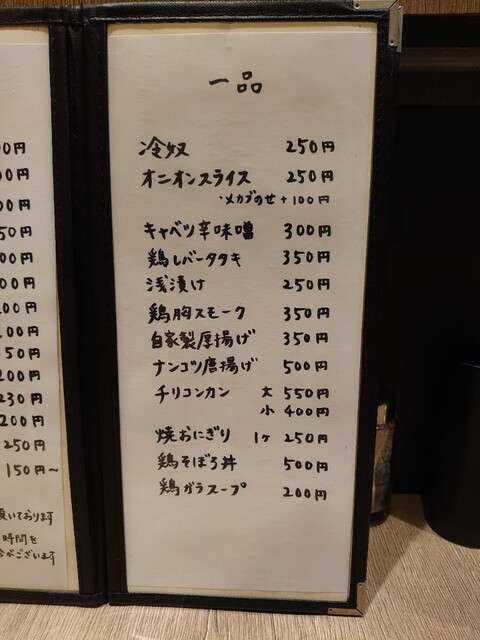 一品
冷奴 250円
オニオンスライス 250円
・メカブのせ +100円
キャベツ辛味噌 300円
鶏レバータタキ 350円
浅漬け 250円
鶏胸スモーク 350円
自家製厚揚げ 350円
ナンコツ唐揚げ 500円
チリコンカン 大 550円
小 400円
焼おにぎり 1ヶ 250円
鶏そぼろ丼 500円
鶏ガラスープ 200円
0円
0円
00円
50円
00円
00円
200円
50円
200円
230円
200円
250円
150円~
頂いております
時間を
がございます